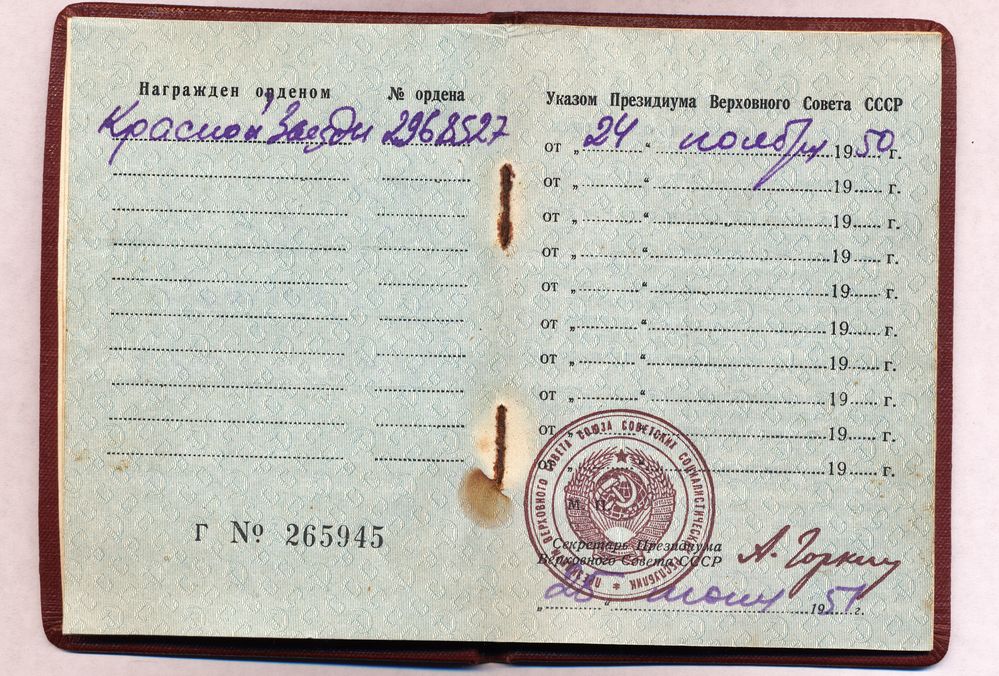 Награжден орденом № ордена
Красной Звезды 2968527
Г № 265945
Указом Президиума Верховного Совета СССР
от „ 24 “ ноября 1950 г.
от „ “ 19 г.
от „ “ 19 г.
от „ “ 19 г.
от „ “ 19 г.
от „ “ 19 г.
от „ “ 19 г.
от „ “ 19 г.
от „ 19 г.
от „ 19 г.
ПРЕЗИДИУМ ВЕРХОВНОГО СОВЕТА СОЮЗА СОВЕТСКИХ СОЦИАЛИСТИЧЕСКИХ РЕСПУБЛИК
М. П.
Секретарь Президиума
Верховного Совета СССР
А. Горкин
„ 25 “ 1951 г.